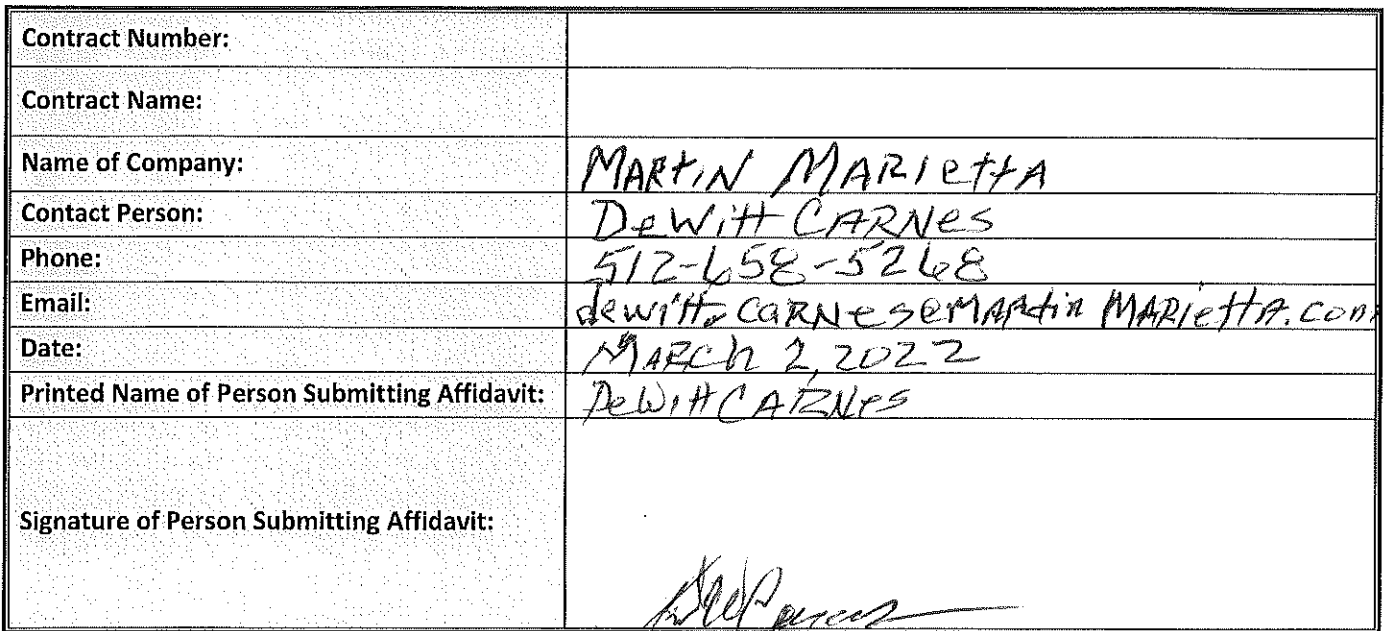 Contract Number:
Contract Name:
Name of Company: MARtiN MARIettA
Contact Person: DeWitt CARNes
Phone: 512-658-5268
Email: dewitt.CARNes@MARtin MARiettA.com
Date: MARCh 2, 2022
Printed Name of Person Submitting Affidavit: DeWitt CARNes
Signature of Person Submitting Affidavit: